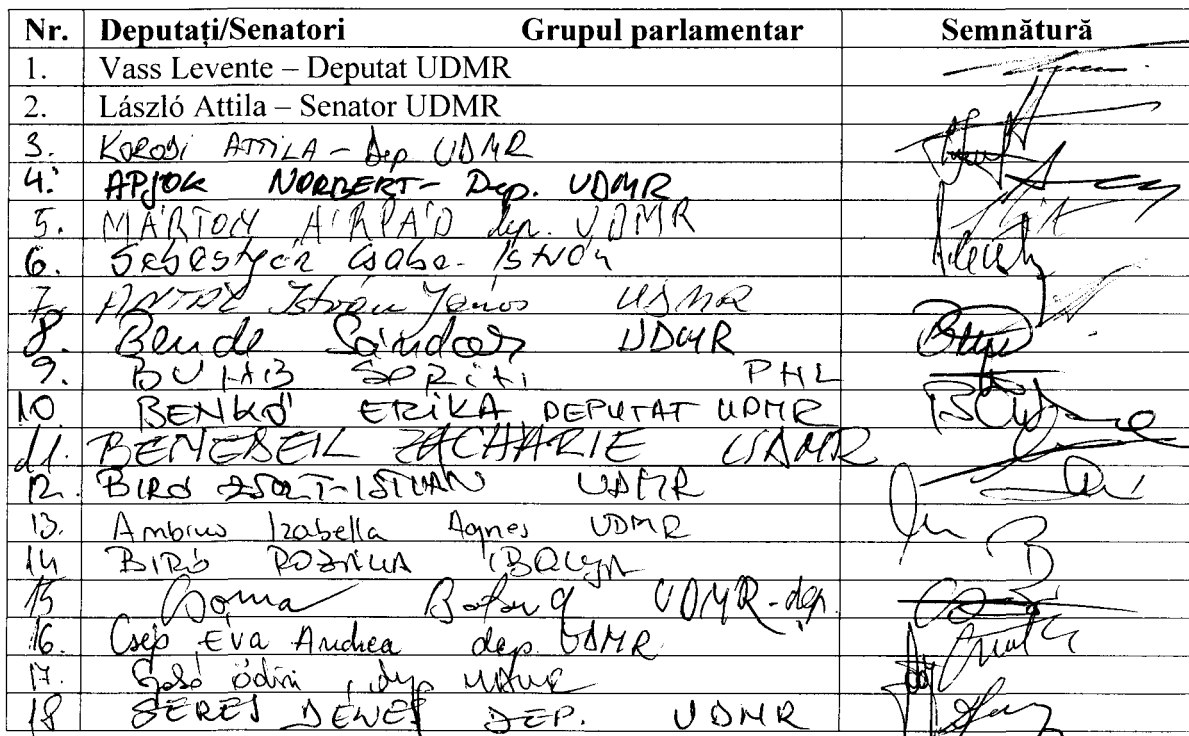 Nr. Deputați/Senatori Grupul parlamentar Semnătură
1. Vass Levente – Deputat UDMR
2. László Attila – Senator UDMR
3. KORODI ATTILA – Dep UDMR
4. APJOK NORBERT – Dep. UDMR
5. MÁRTON ÁRPÁD dep. UDMR
6. Sebestyén Csaba-István
7. ANTAL István János UDMR
8. Bende Sándor UDMR
9. SORIN
10 BENKŐ ERIKA DEPUTAT UDMR
11. BENEDEK ZACHARIE UDMR
12. BIRÓ ZSOLT-ISTVAN UDMR
13. Ambrus Izabella Agnes UDMR
14 BIRÓ ROZALIA IBOLYA
15 Csoma Botond UDMR-dep.
16. Csép Éva Andrea dep. UDMR
17. dep UDMR
18 SERES DENES DEP. UDMR